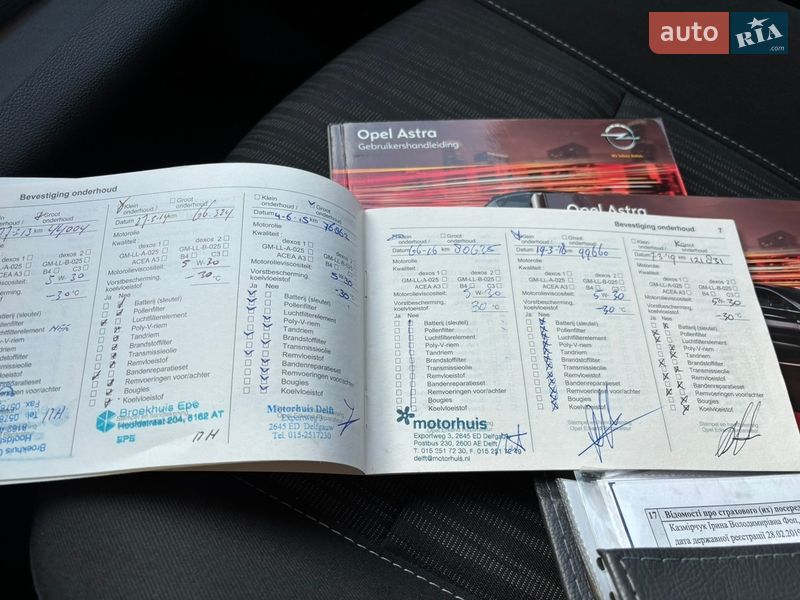 auto RIA .com
Opel Astra
Gebruikershandleiding
Wir leben Autos.
Opel Astra
Bevestiging onderhoud
Groot
onderhoud
44004
-30°C
Klein onderhoud / Groot onderhoud
Datum 27-5-14 km 66.324
Motorolie
Kwaliteit
dexos 1 dexos 2
GM-LL-A-025 GM-LL-B-025
ACEA A3 B4 C3
Motorolieviscositeit:
5 W-30
Vorstbescherming
koelvloeistof
-30°C
Ja Nee
Batterij (sleutel)
Pollenfilter
Luchtfilterelement
Poly-V-riem
Tandriem
Brandstoffilter
Transmissieolie
Remvloeistof
Bandenreparatieset
Remvoeringen voor/achter
Bougies
Koelvloeistof
Broekhuis Epe
Hoofdstraat 204, 8162 AT
EPE
Klein onderhoud / Groot onderhoud
Datum 4-6-15 km
Motorolie
Kwaliteit
dexos 1 dexos 2
GM-LL-A-025 GM-LL-B-025
ACEA A3 B4 C3
Motorolieviscositeit:
5W-30
Vorstbescherming
koelvloeistof
-30°C
Ja Nee
Batterij (sleutel)
Pollenfilter
Luchtfilterelement
Poly-V-riem
Tandriem
Brandstoffilter
Transmissieolie
Remvloeistof
Bandenreparatieset
Remvoeringen voor/achter
Bougies
Koelvloeistof
Motorhuis Delft
2645 ED Delfgauw
Tel. 015-2517230
Bevestiging onderhoud 7
Klein onderhoud / Groot onderhoud
Datum km 80625
Motorolie
Kwaliteit
dexos 1 dexos 2
GM-LL-A-025 GM-LL-B-025
ACEA A3 B4 C3
Motorolieviscositeit:
5 W-30
Vorstbescherming
koelvloeistof
30 °C
Ja Nee
Batterij (sleutel)
Pollenfilter
Luchtfilterelement
Poly-V-riem
Tandriem
Brandstoffilter
Transmissieolie
Remvloeistof
Bandenreparatieset
Remvoeringen voor/achter
Bougies
Koelvloeistof
motorhuis
Exportweg 3, 2645 ED Delfgauw
Postbus 230, 2600 AE Delft
T. 015 251 72 30, F. 015 251
delft@motorhuis.nl
Klein onderhoud / Groot onderhoud
Datum 19-3-18 km 99660
Motorolie
Kwaliteit
dexos 1 dexos 2
GM-LL-A-025 GM-LL-B-025
ACEA A3 B4 C3
Motorolieviscositeit:
5 W-30
Vorstbescherming
koelvloeistof
-30°C
Ja Nee
Batterij (sleutel)
Pollenfilter
Luchtfilterelement
Poly-V-riem
Tandriem
Brandstoffilter
Transmissieolie
Remvloeistof
Bandenreparatieset
Remvoeringen voor/achter
Bougies
Koelvloeistof
Klein onderhoud / Groot onderhoud
Datum km 121831
Motorolie
Kwaliteit
dexos 1 dexos 2
GM-LL-A-025 GM-LL-B-025
ACEA A3 B4 C3
Motorolieviscositeit:
5W-30
Vorstbescherming
koelvloeistof
-30°C
Ja Nee
Batterij (sleutel)
Pollenfilter
Luchtfilterelement
Poly-V-riem
Tandriem
Brandstoffilter
Transmissieolie
Remvloeistof
Bandenreparatieset
Remvoeringen voor/achter
Bougies
Koelvloeistof
17 Відомості про страхового (их) посеред
Казмірчук Ірина Володимирівна Фоп,
дата державної реєстрації 28.02.2019